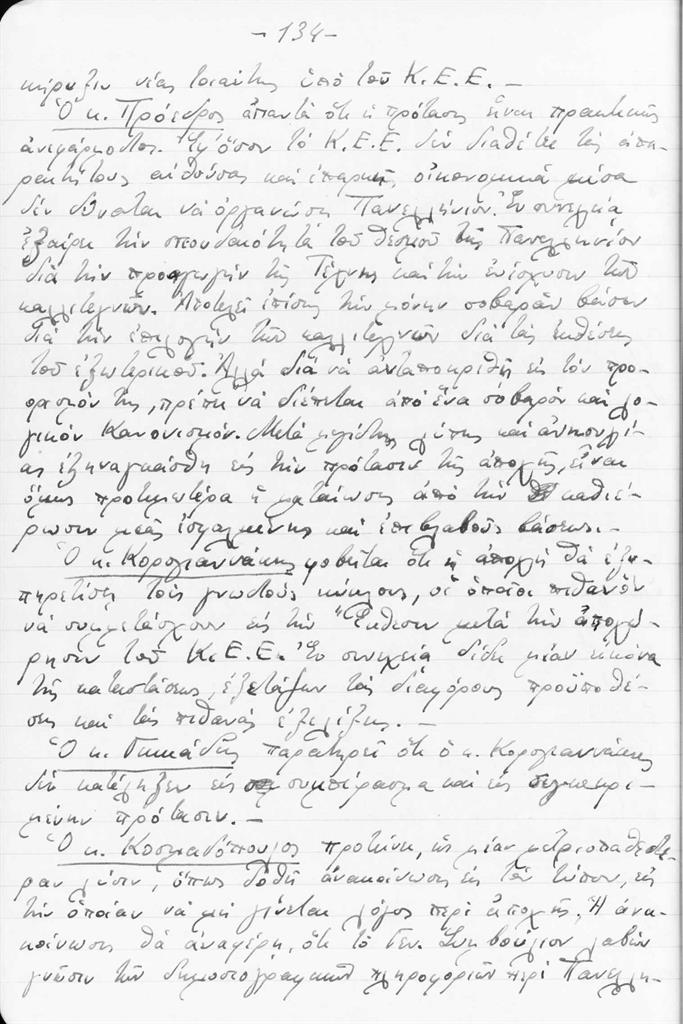 - 134 -
κήρυξιν νέας τοιαύτης ὑπὸ τοῦ Κ.Ε.Ε. –
Ὁ κ. Πρόεδρος ἀπαντᾶ ὅτι ἡ πρότασις εἶναι πρακτικῶς
ἀνεφάρμοστος. Ἐφ' ὅσον τὸ Κ.Ε.Ε. δὲν διαθέτει τὰς ἀπα-
ραιτήτους αἰθούσας καὶ ἐπαρκῆ οἰκονομικὰ μέσα
δὲν δύναται νὰ ὀργανώσῃ Πανελλήνιον. Ἐν συνεχείᾳ
ἐξαίρει τὴν σπουδαιότητα τοῦ θεσμοῦ τῆς Πανελληνίου
διὰ τὴν προαγωγὴν τῆς Τέχνης καὶ τὴν ἐνίσχυσιν τῶν
καλλιτεχνῶν. Ἀποτελεῖ ἐπίσης τὴν μόνην σοβαρὰν βάσιν
διὰ τὴν ἐπιλογὴν τῶν καλλιτεχνῶν διὰ τὰς ἐκθέσεις
τοῦ ἐξωτερικοῦ. Ἀλλὰ διὰ νὰ ἀνταποκριθῇ εἰς τὸν προ-
ορισμόν της, πρέπει νὰ διέπεται ἀπὸ ἕνα σοβαρὸν καὶ λο-
γικὸν Κανονισμόν. Μετὰ μεγίστης λύπης καὶ ἀνησυχί-
ας ἐξηναγκάσθη εἰς τὴν πρότασιν τῆς ἀποχῆς, εἶναι
ὅμως προτιμωτέρα ἡ ματαίωσις ἀπὸ τὴν καθιέ-
ρωσιν μιᾶς ἐσφαλμένης καὶ ἐπιβλαβοῦς βάσεως. –
Ὁ κ. Κορογιαννάκης φοβεῖται ὅτι ἡ ἀποχὴ θὰ ἐξυ-
πηρετήσῃ τοὺς γνωστοὺς κύκλους, οἱ ὁποῖοι πιθανὸν
νὰ συμμετάσχουν εἰς τὴν Ἔκθεσιν μετὰ τὴν ἀποχώ-
ρησιν τοῦ Κ.Ε.Ε. Ἐν συνεχείᾳ δίδει μίαν εἰκόνα
τῆς καταστάσεως, ἐξετάζων τὰς διαφόρους προϋποθέ-
σεις καὶ τὰς πιθανὰς ἐξελίξεις. –
Ὁ κ. παρατηρεῖ ὅτι ὁ κ. Κορογιαννάκης
δὲν κατέληξεν εἰς συμπέρασμα καὶ εἰς συγκεκρι-
μένην πρότασιν. –
Ὁ κ. Κοσμαδόπουλος προτείνει, ὡς μίαν μετριοπαθεστέ-
ραν λύσιν, ὅπως δοθῇ ἀνακοίνωσις εἰς τὸν τύπον, εἰς
τὴν ὁποίαν νὰ μὴ γίνεται λόγος περὶ ἀποχῆς. Ἡ ἀνα-
κοίνωσις θὰ ἀναφέρῃ, ὅτι τὸ Γεν. Συμβούλιον λαβὸν
γνῶσιν τῶν δημοσιογραφικῶν πληροφοριῶν περὶ Πανελλη-